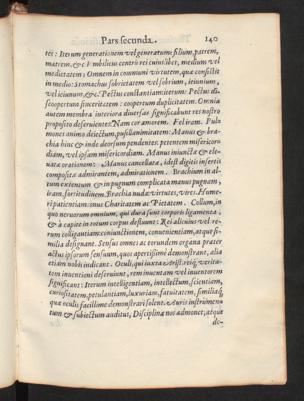 Pars secunda. 140
tes: Iterum generationem vel generatum: filium, patrem,
matrem, &c. Vmbilicus centrũ rei cuiuslibet, medium vel
medietatem: Omnem in communi virtutem, quæ consistit
in medio: Stomachus sobrietatem vel sobrium, ieiunium,
vel ieiunum, &c. Pectus constantiam: iterum: Pectus dis-
coopertum sinceritatem: coopertum duplicitatem. Omnia
autem membra interiora diuersas significabunt res nostro
proposito deseruientes. Nam cor amorem. Fel iram. Pul-
mones animo deiectum, pusillanimitatem: Manus & bra-
chia hinc & inde deorsum pendentes: petentem misericor-
diam, vel ipsam misericordiam. Manus iniunctæ & ele-
uatæ orationem: Manus cancellatæ, idest digitis insertis
compositæ admirantem, admirationem. Brachium in al-
tum extentum & in pugnum complicata manus pugnam,
iram, fortitudinem. Brachia nuda virtutes, vires. Hume-
ri patientiam: onus Charitatem ac Pietatem. Collum, in
quo neruorum omnium, qui dura sunt corporis ligamenta,
& à capite in totum corpus defluunt: Rei alicuius vel re-
rum colligantiam: coniunctionem, conuenientiam, atque si-
milia designant. Sensus omnes ac eorundem organa præter
actus ipsorum sensuum, quos apertissimè demonstrant, alia
etiam nobis indicant. Oculi, qui iuxta Arist. reiq; verita-
tem inuentioni deseruiunt, rem inuentam vel inuentorem
significant: Iterum intelligentiam, intellectum, scientiam,
curiositatem, petulantiam, luxuriam, fatuitatem, similiaq;
quæ oculis facillime demonstrari solent. Auris instrumen-
tum & subiectum auditus, Disciplinæ nos admonet, atque